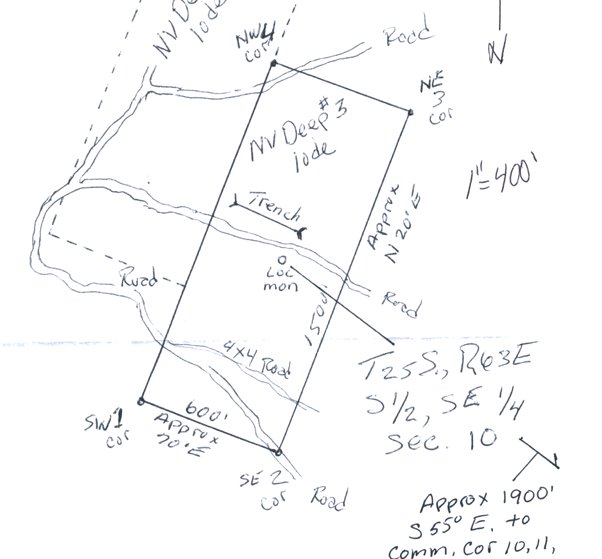 NV De
lode
NW 4
cor
Road
N
NE
3
cor
NV Deep #3
lode
1"=400'
Trench
Approx
N 20° E
LOC
mon
Road
Road
1500'
4x4 Road
T25S., R63E
S 1/2, SE 1/4
Sec. 10
SW 1
cor
600'
Approx
70° E
SE 2
cor
Road
Approx 1900'
S 55° E. to
Comm. Cor 10, 11,